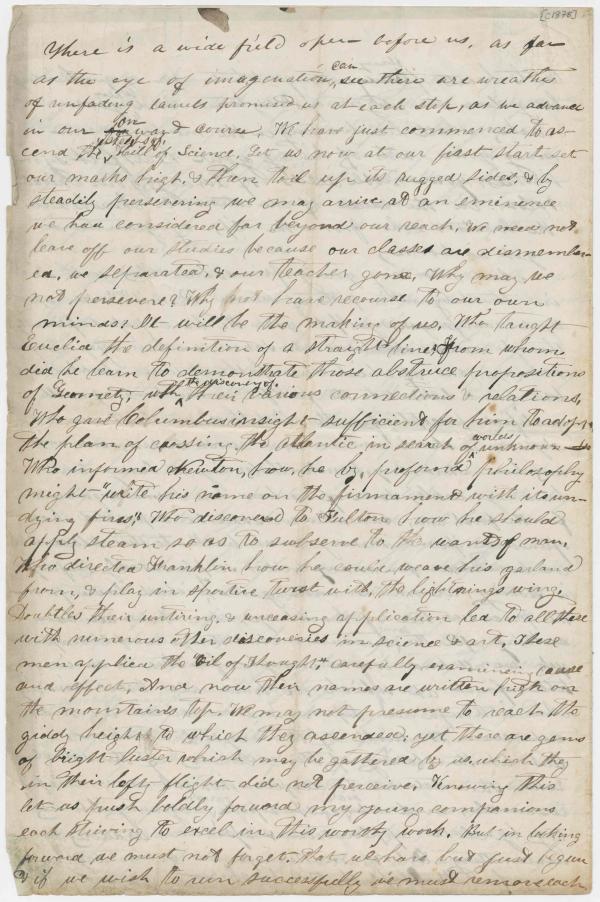 [c1875]
There is a wide field open before us, as far
as the eye of imagenation can see there are wreaths
of unfading laurels promised us at each step, as we advance
in our on ward course. We have just commenced to as-
cend the steeps hill of Science. Let us now at our first start set
our marks high, & then toil up its rugged sides, & by
steadily persevering we may arrive at an eminence
we had considered far beyond our reach. We need not
leave off our studies because our classes are dismember-
ed, we separated, & our teacher gone. Why may we
not persevere? Why not have recourse to our own
minds? It will be the making of us. Who taught
Euclid the definition of a straight line? From whom
did he learn to demonstrate those abstruce propositions
of Geometry, with the discovery of their various connections & relations,
Who gave Columbus insight sufficient for him to adopt
the plan of crossing the atlantic in search of worlds unknown
Who informed Newton, how he by profound philosophy
might "write his name on the firmament with its un-
dying fires". Who discovered to Fulton how he should
apply steam so as to subserve to the wants of man.
Who directed Franklin how he could weave his garland
from, & play in sportive twist with, the lightnings wing.
Doubtles their untiring & unceasing application led to all these
with numerous other discoveries in science & art. These
men applied the "Oil of Thought", carefully examineing cause
and effect. And now their names are written high on
the mountains top. We may not presume to reach the
giddy height to which they ascended; yet there are gems
of bright luster which may be gathered by us which they
in their lofty flight did not perceive. Knowing this
let us push boldly forward my young companions
each striving to excel in this worthy work. But in looking
forward we must not forget, that we have but just begun
& if we wish to run successfully we must remove each